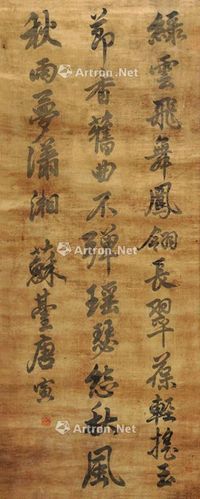 綠雲飛舞鳳翎長翠葆輕搖玉
節香舊曲不彈瑶瑟愁秋風
秋雨夢瀟湘 蘇臺唐寅
Artron.Net
Artron.Net
Artron.Net